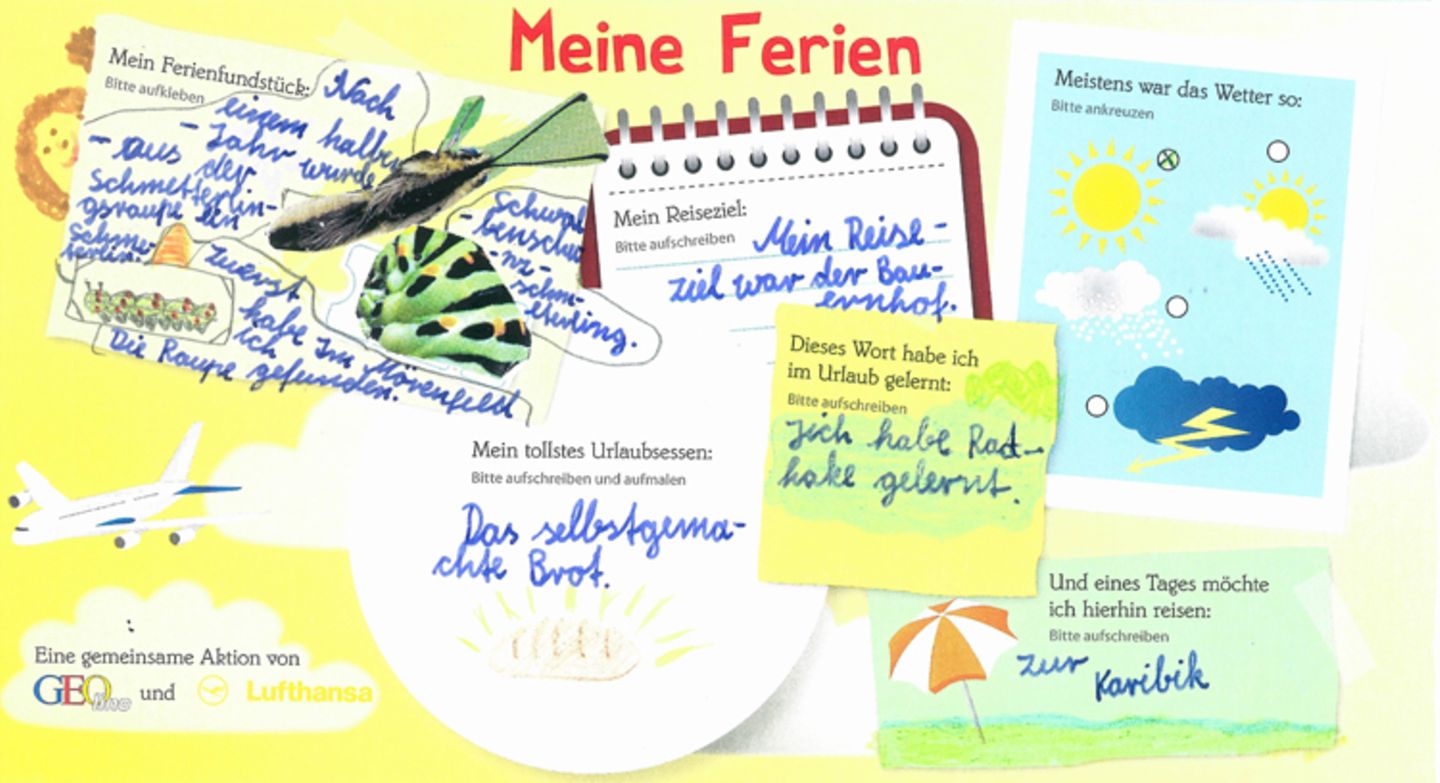 Meine Ferien
Mein Ferienfundstück:
Bitte aufkleben
Nach
einem halben
- Jahr wurde
- aus der
Schmetterlin-
gsraupe ein
Schme-
terlin.
Zuerst
habe ich
Im Mövenfeld
Die Raupe gefunden.
- Schwal
benschw
- nz -
- schm-
etterling.
Mein Reiseziel:
Bitte aufschreiben
Mein Reise-
ziel war der Bau-
ernhof.
Meistens war das Wetter so:
Bitte ankreuzen
Dieses Wort habe ich
im Urlaub gelernt:
Bitte aufschreiben
Ich habe Rad-
hake gelernt.
Mein tollstes Urlaubsessen:
Bitte aufschreiben und aufmalen
Das selbstgema-
chte Brot.
Und eines Tages möchte
ich hierhin reisen:
Bitte aufschreiben
zur
Karibik
Eine gemeinsame Aktion von
GEOlino und Lufthansa